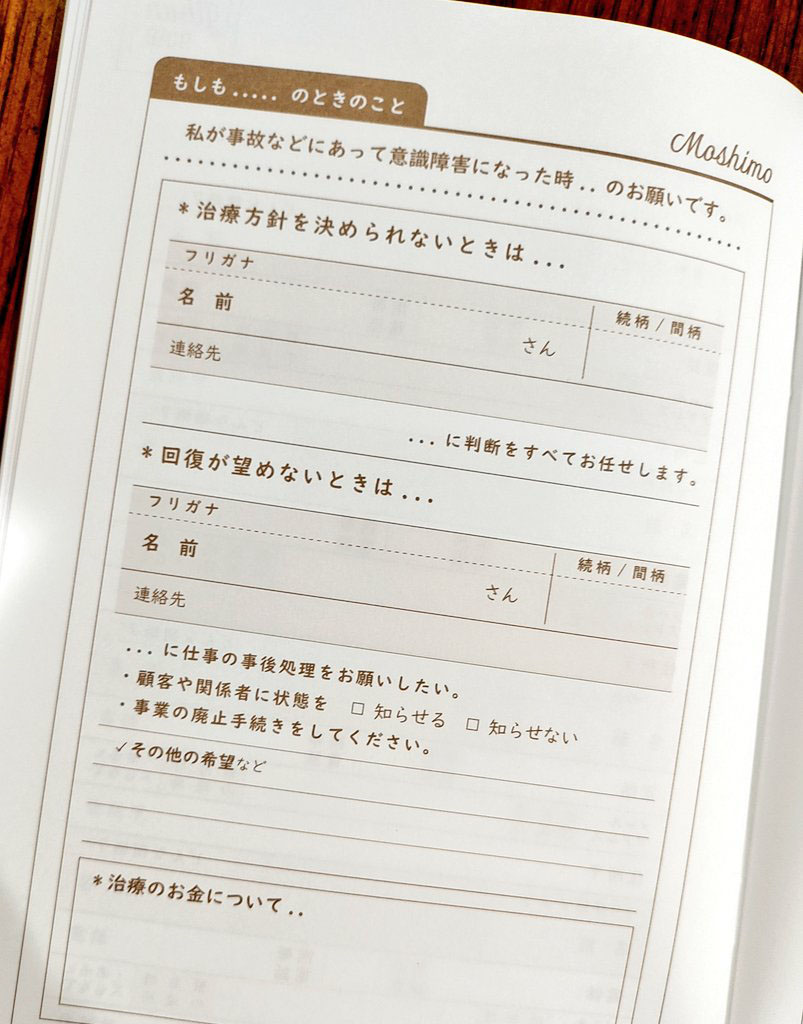 もしも..... のときのこと
Moshimo
私が事故などにあって意識障害になった時.. のお願いです。
*治療方針を決められないときは...
フリガナ
続柄 / 間柄
名 前
さん
連絡先
... に判断をすべてお任せします。
*回復が望めないときは...
フリガナ
続柄 / 間柄
名 前
さん
連絡先
... に仕事の事後処理をお願いしたい。
・顧客や関係者に状態を □ 知らせる □ 知らせない
・事業の廃止手続きをしてください。
✓その他の希望など
*治療のお金について..